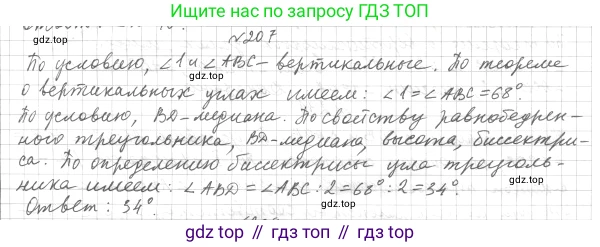 Ищите нас по запросу ГДЗ ТОП
gdz.top
№207
gdz.top
По условию, ∠1 и ∠ABC - вертикальные. По теореме
о вертикальных углах имеем: ∠1=∠ABC=68°.
По условию, BD-медиана. По свойству равнобедрен-
ного треугольника, BD-медиана, высота, биссектри-
са. По определению биссектрисы угла треуголь-
ника имеем: ∠ABD=∠ABC:2=68°:2=34°.
Ответ: 34°.
gdz.top
gdz.top // gdz.top // gdz.top